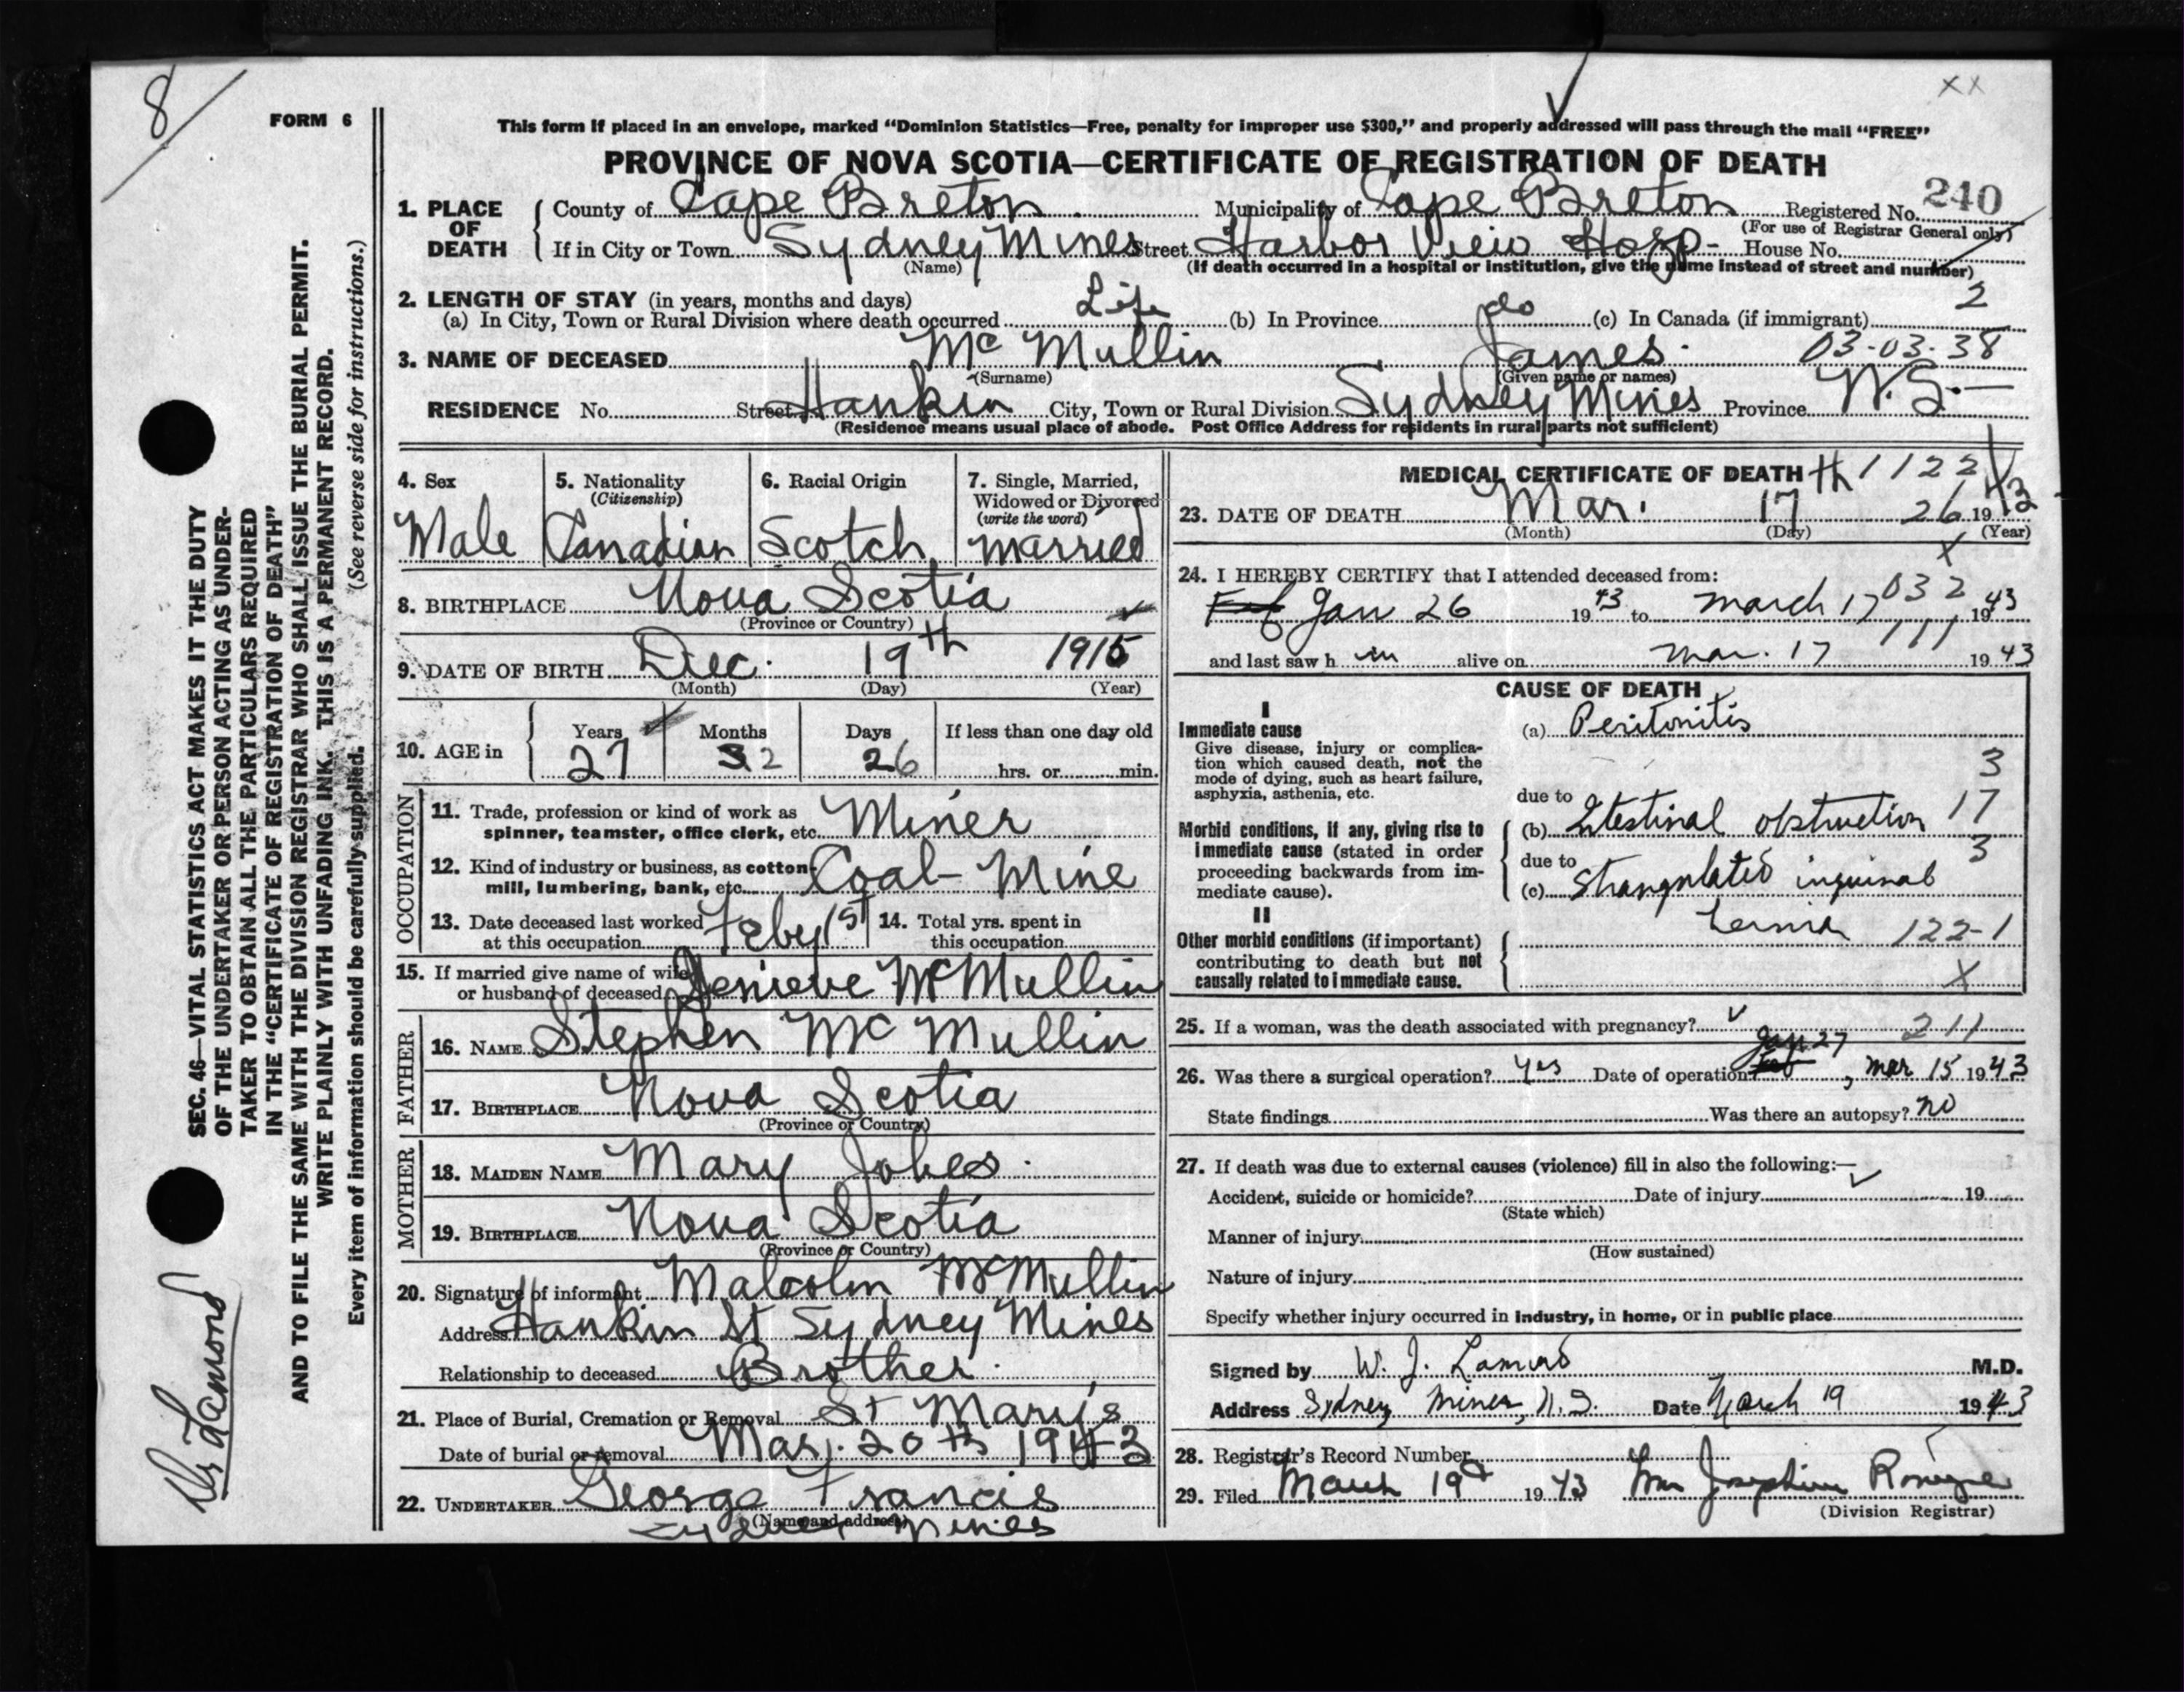 8
XX
FORM 6
This form if placed in an envelope, marked “Dominion Statistics—Free, penalty for improper use $300,” and properly addressed will pass through the mail “FREE”
PROVINCE OF NOVA SCOTIA—CERTIFICATE OF REGISTRATION OF DEATH
240
1. PLACE OF DEATH { County of Cape Breton Municipality of Cape Breton Registered No.
(For use of Registrar General only)
If in City or Town Sydney Mines Street Harbor View Hosp- House No.
(Name) (If death occurred in a hospital or institution, give the name instead of street and number)
2. LENGTH OF STAY (in years, months and days)
(a) In City, Town or Rural Division where death occurred Life (b) In Province do (c) In Canada (if immigrant) 2
3. NAME OF DECEASED Mc Mullin James 03-03-38
(Surname) (Given name or names)
RESIDENCE No. Street Hankin City, Town or Rural Division Sydney Mines Province N.S.—
(Residence means usual place of abode. Post Office Address for residents in rural parts not sufficient)
4. Sex Male
5. Nationality (Citizenship) Canadian
6. Racial Origin Scotch
7. Single, Married, Widowed or Divorced (write the word) married
8. BIRTHPLACE Nova Scotia
(Province or Country)
9. DATE OF BIRTH Dec. 19th 1915
(Month) (Day) (Year)
10. AGE in { Years 27 Months 2 Days 26 If less than one day old
hrs. or min.
OCCUPATION
11. Trade, profession or kind of work as
spinner, teamster, office clerk, etc. Miner
12. Kind of industry or business, as cotton-
mill, lumbering, bank, etc. Coal- Mine
13. Date deceased last worked at this occupation Feby 1st
14. Total yrs. spent in this occupation
15. If married give name of wife
or husband of deceased Jenieve McMullin
FATHER
16. NAME Stephen Mc Mullin
17. BIRTHPLACE Nova Scotia
(Province or Country)
MOTHER
18. MAIDEN NAME Mary
19. BIRTHPLACE Nova Scotia
(Province or Country)
20. Signature of informant Malcolm McMullin
Address Hankin St Sydney Mines
Relationship to deceased Brother
21. Place of Burial, Cremation or Removal St Mary's
Date of burial or removal Mar. 20th 1943
22. UNDERTAKER George Francis
(Name and address)
Sydney Mines
MEDICAL CERTIFICATE OF DEATH 1122
23. DATE OF DEATH Mar. 17th 26 1943
(Month) (Day) (Year)
X
24. I HEREBY CERTIFY that I attended deceased from:
Jan 26 1943 to March 17 032 1943
111
and last saw h im alive on Mar. 17 1943
CAUSE OF DEATH
I
Immediate cause (a) Peritonitis
Give disease, injury or complica-
tion which caused death, not the
mode of dying, such as heart failure,
asphyxia, asthenia, etc.
3
due to
Morbid conditions, if any, giving rise to
immediate cause (stated in order
proceeding backwards from im-
mediate cause).
(b) Intestinal obstruction 17
due to 3
(c) Strangulated inguinal
hernia 122-1
II
Other morbid conditions (if important)
contributing to death but not
causally related to immediate cause.
X
25. If a woman, was the death associated with pregnancy? 211
26. Was there a surgical operation? Yes Date of operation Jan 27, Mar 15 1943
State findings Was there an autopsy? no
27. If death was due to external causes (violence) fill in also the following:—
Accident, suicide or homicide? Date of injury 19
(State which)
Manner of injury
(How sustained)
Nature of injury
Specify whether injury occurred in industry, in home, or in public place
Signed by W. J. Lamond M.D.
Address Sydney Mines, N.S. Date March 19 1943
28. Registrar's Record Number
29. Filed March 19th 1943 Josephine
(Division Registrar)
SEC. 46—VITAL STATISTICS ACT MAKES IT THE DUTY
OF THE UNDERTAKER OR PERSON ACTING AS UNDER-
TAKER TO OBTAIN ALL THE PARTICULARS REQUIRED
IN THE “CERTIFICATE OF REGISTRATION OF DEATH”
AND TO FILE THE SAME WITH THE DIVISION REGISTRAR WHO SHALL ISSUE THE BURIAL PERMIT.
WRITE PLAINLY WITH UNFADING INK. THIS IS A PERMANENT RECORD.
Every item of information should be carefully supplied. (See reverse side for instructions.)
Dr Lamond